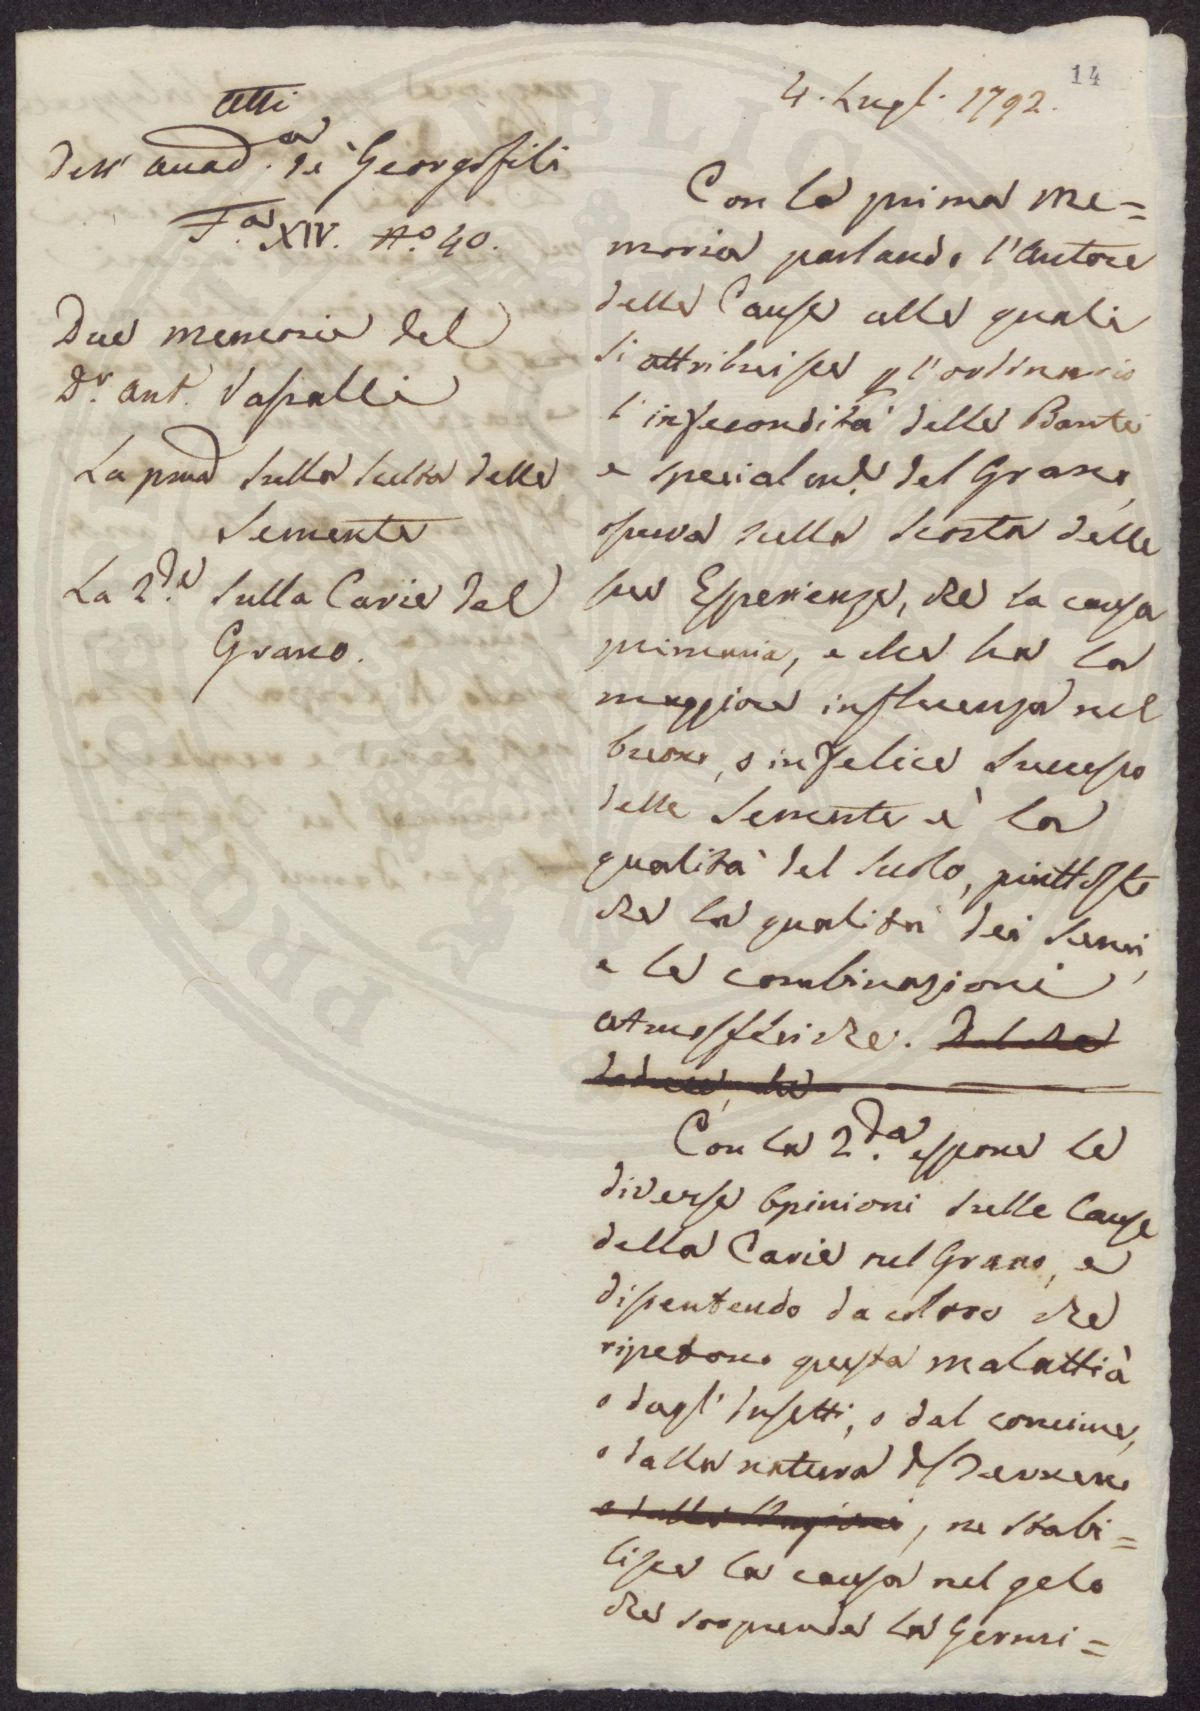 14
4. Lugl. 1792.
Atti
Dell' Accad.a de' Georgofili
F.a XIV. N.o 40.
Due memorie del
D.r Ant. Vassalli
La pma sulla scelta delle
Semente
La 2.da sulla Carie del
Grano.
Con la prima Me=
moria parlando l'Autore
delle Cause alle quali
si attribuisce p l'ordinario
l'infecondità delle Piante
e specialm.e del Grano,
prova sulla scorta delle
sue Esperienze, che la causa
primaria, e che ha la
maggiore influenza nel
buono, o infelice successo
delle Semente è la
qualità del suolo, piuttosto
che la qualità dei semi,
e le combinazioni
atmosferiche.
Con la 2.da espone le
diverse Opinioni sulle Cause
della Carie nel Grano, e
dissentendo da coloro che
ripetono questa malattia
o dagl' Insetti, o dal concime,
o dalla natura del Terreno
, ne stabi=
lisce la causa nel gelo
che sorprende la Germi=
PROPRIETÀ PUBLICA